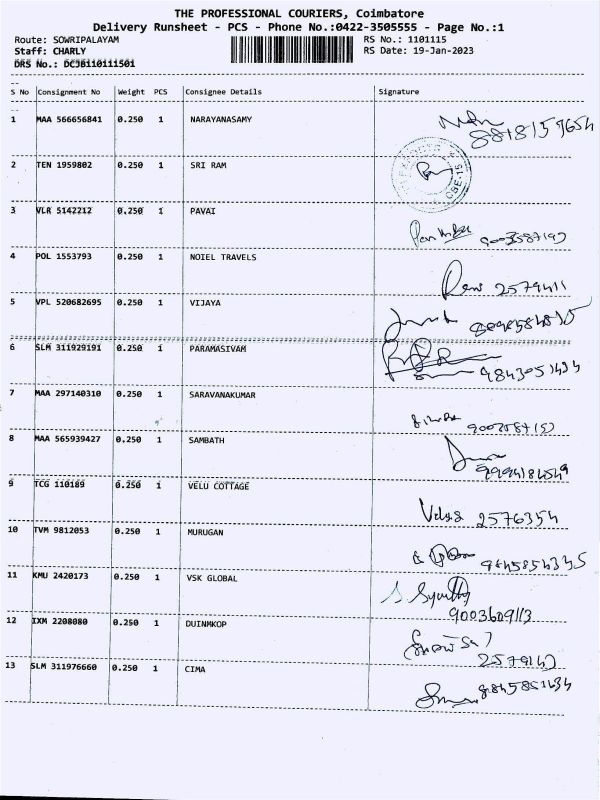 THE PROFESSIONAL COURIERS, Coimbatore
Delivery Runsheet - PCS - Phone No.:0422-3505555 - Page No.:1
Route: SOWRIPALAYAM RS No.: 1101115
Staff: CHARLY RS Date: 19-Jan-2023
DRS No.: DCJB110111501
S No Consignment No Weight PCS Consignee Details Signature
1 MAA 566656841 0.250 1 NARAYANASAMY
2 TEN 1959802 0.250 1 SRI RAM
3 VLR 5142212 0.250 1 PAVAI
4 POL 1553793 0.250 1 NOIEL TRAVELS 2579411
5 VPL 520682695 0.250 1 VIJAYA
6 SLM 311929191 0.250 1 PARAMASIVAM 9843051434
7 MAA 297140310 0.250 1 SARAVANAKUMAR
8 MAA 565939427 0.250 1 SAMBATH
9 TCG 110189 0.250 1 VELU COTTAGE 2576354
10 TVM 9812053 0.250 1 MURUGAN
11 KMU 2420173 0.250 1 VSK GLOBAL 9003609113
12 IXM 2208080 0.250 1 DUINMKOP
13 SLM 311976660 0.250 1 CIMA